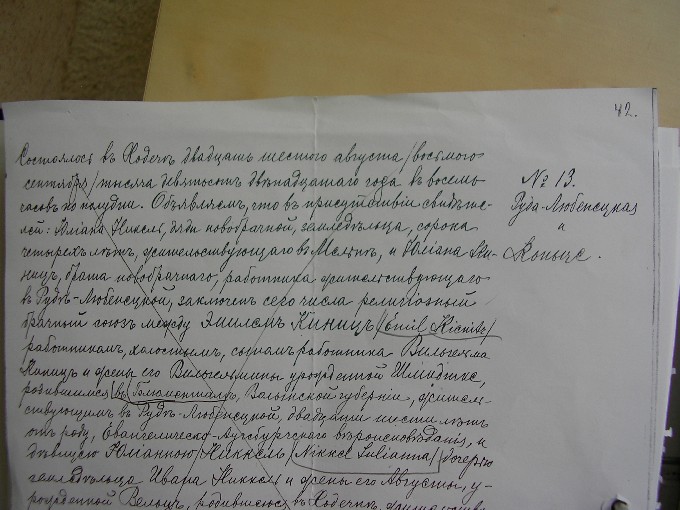 42.
Состоялось въ Ходечѣ двадцать шестого августа /восьмого
сентября/ тысяча девятьсотъ двѣнадцатаго года въ восемь
часовъ по полудни. Объявляемъ, что въ присутствіи свидѣте-
лей: Юліана Никкель, дяди новобрачной, земледѣльца, сорока
четырехъ лѣтъ, жительствующаго въ, и Юліана Ки-
ницъ, брата новобрачнаго, работника жительствующаго
въ Рудѣ-Любенецкой, заключенъ сего числа религіозный
брачный союзъ между Эмилемъ Киницъ /Emil Kienitz/
работникомъ, холостымъ, сыномъ работника Вильгельма
Киницъ и жены его Вильгельмины урожденной Шмидтке,
родившимся въ Блюменталѣ, Волынской губерніи, житель-
ствующимъ въ Рудѣ-Любенецкой, двадцати шести лѣтъ
отъ роду, Евангелическо-Аугсбургскаго вѣроисповѣданія, и
дѣвицею Юліанною Никкель /Nikkel Julianna/ дочерью
земледѣльца Ивана Никкель и жены его Августы, у-
рожденной Велькъ, родившеюся въ Ходечкѣ,
№ 13.
Руда-Любенецкая
и